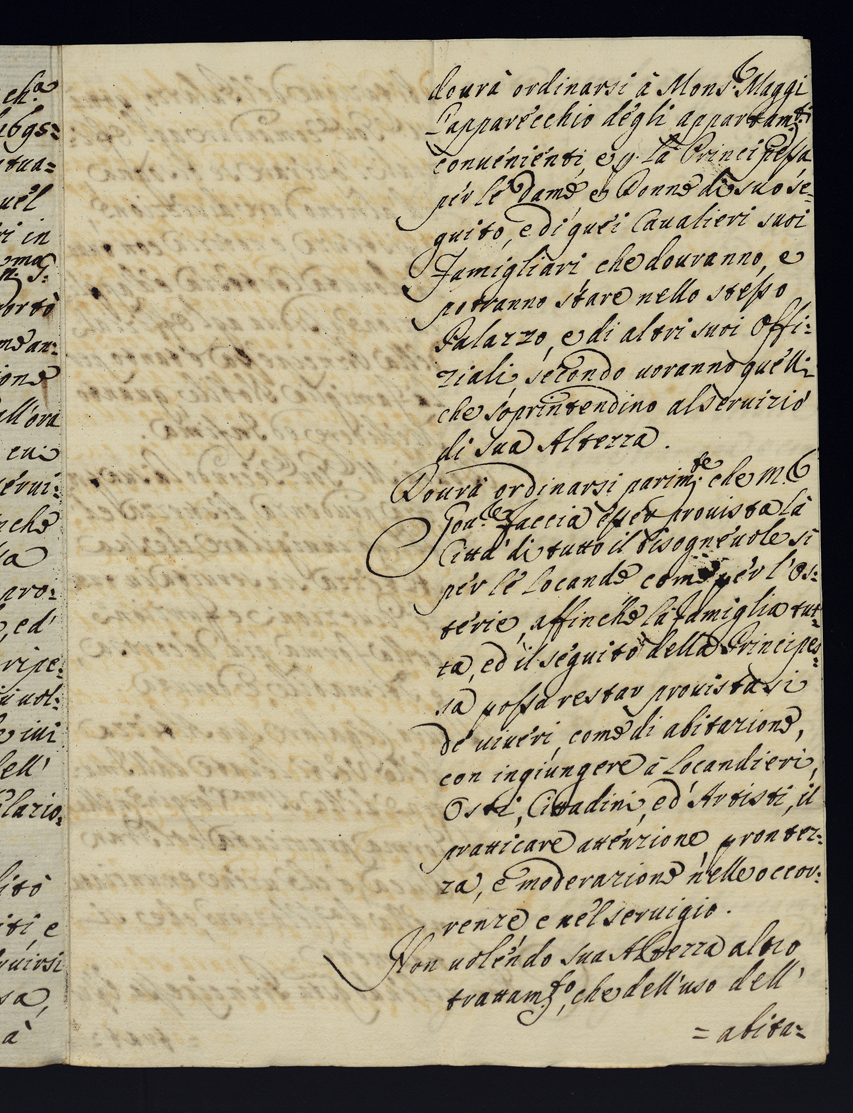 dourà ordinarsi à Mons.r Maggi
l'apparecchio degli appartam.ti
conuenienti e p. la Principessa
per le Dame e Donne di suo se-
guito, e di quei Caualieri suoi
Famigliari che douranno, e
potranno stare nello stesso
Palazzo, e di altri suoi Offi:
ziali, secondo uoranno quelli
che soprintendino al seruizio
di sua Altezza.
Dourà ordinarsi parim.te che M.r
Gou.re faccia esser prouista la
Città di tutto il bisogneuole sì
per le Locande come per l'Os:
terie, affinche la famiglia tut:
ta, ed il seguito della Principes:
sa possa restar prouista sì
de uiueri, come di abitazione,
con ingiungere a Locandieri,
Osti, Cittadini, ed Artisti, il
pratticare attenzione, prontez:
za, e moderazione nelle occor:
renze e nel seruigio.
Non uolendo sua Altezza altro
trattam.to, che dell'uso dell'
= abita=
ch.a
tua=
uel
ri in
ione
all'ora
cui
erui:
nche
sa
pro:
, ed
ripe:
i uol:
e iui
ell'
lario:
lità
iti, e
ruirsi
sa,
à